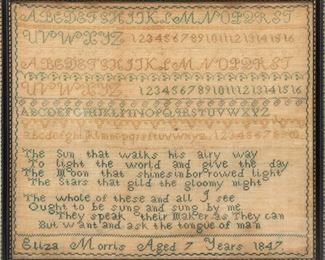 ABCDEFGHIJKLMNOPQRST
UVWXYZ 12345678910111213141516
ABCDEFGHIJKLMNOPQRST
UVWXYZ 12345678910111213141516
ABCDEFGHIJKLMNOPQRSTUVWXYZ
abcdefghijklmnopqrstuvwxyz
The Sun that walks his airy way
To light the world and give the day
The Moon that shines in borrowed light
The Stars that gild the gloomy night
The whole of these and all I see
Ought to be sung and sung by me
They speak their maker as They can
But want and ask the tongue of man
Eliza Morris Aged 7 Years 1847